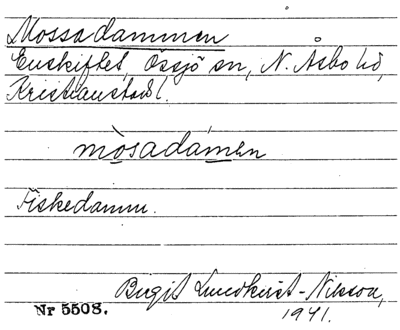 Mossadammen
Enskiftet, Össjö sn, N. Åsbo hd,
Kristianstads l.
mòsadámen
Fiskedamm.
Birgit Lundkvist-Nilsson,
1941.
Nr 5508.